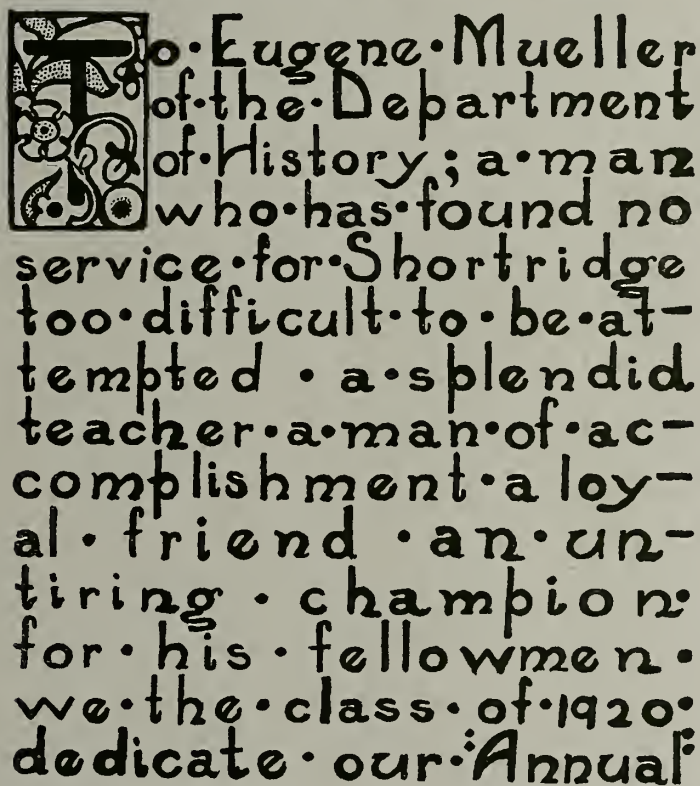 To·Eugene·Mueller
of·the·Department
of·History; a·man
who·has·found no
service·for·Shortridge
too·difficult·to·be·at-
tempted · a·splendid
teacher·a·man·of·ac-
complishment·a loy-
al · friend · an·un-
tiring · champion·
for · his · fellowmen ·
we·the·class·of·1920·
dedicate · our·:Annual: